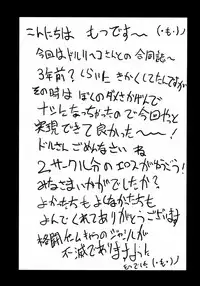 こんにちは もっです〜 (・も・)ノ
今回はドルリヘコさんとの合同誌〜
3年前？くらいにきかくしてたんですが
その時は ぼくのダメさかげんで
ナシになっちゃったので今回やっと
実現できて良かった〜〜！
ドルさんごめんなさいね
2サークル分のエロスがゆうごう！
みなさまいかがでしたか？
よかたちもよくなかたちも
よんでくれてありがとうございます
格闘ゲームキャラのジャンルが
不滅でありますように
もっでした (・も・)ノ